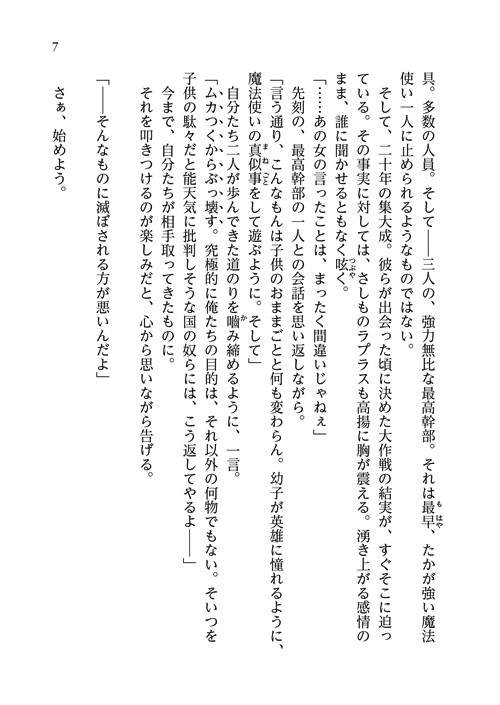 7
具。多数の人員。そして――三人の、強力無比な最高幹部。それは最早、たかが強い魔法
使い一人に止められるようなものではない。
そして、二十年の集大成。彼らが出会った頃に決めた大作戦の結実が、すぐそこに迫っ
ている。その事実に対しては、さしものラプラスも高揚に胸が震える。湧き上がる感情の
まま、誰に聞かせるともなく呟く。
「……あの女の言ったことは、まったく間違いじゃねぇ」
先刻の、最高幹部の一人との会話を思い返しながら。
「言う通り、こんなもんは子供のおままごとと何も変わらん。幼子が英雄に憧れるように、
魔法使いの真似事をして遊ぶように。そして」
自分たち二人が歩んできた道のりを嚙み締めるように、一言。
「ムカつくからぶっ壊す。究極的に俺たちの目的は、それ以外の何物でもない。そいつを
子供の駄々だと能天気に批判しそうな国の奴らには、こう返してやるよ――」
今まで、自分たちが相手取ってきたものに。
それを叩きつけるのが楽しみだと、心から思いながら告げる。
「――そんなものに滅ぼされる方が悪いんだよ」
さぁ、始めよう。